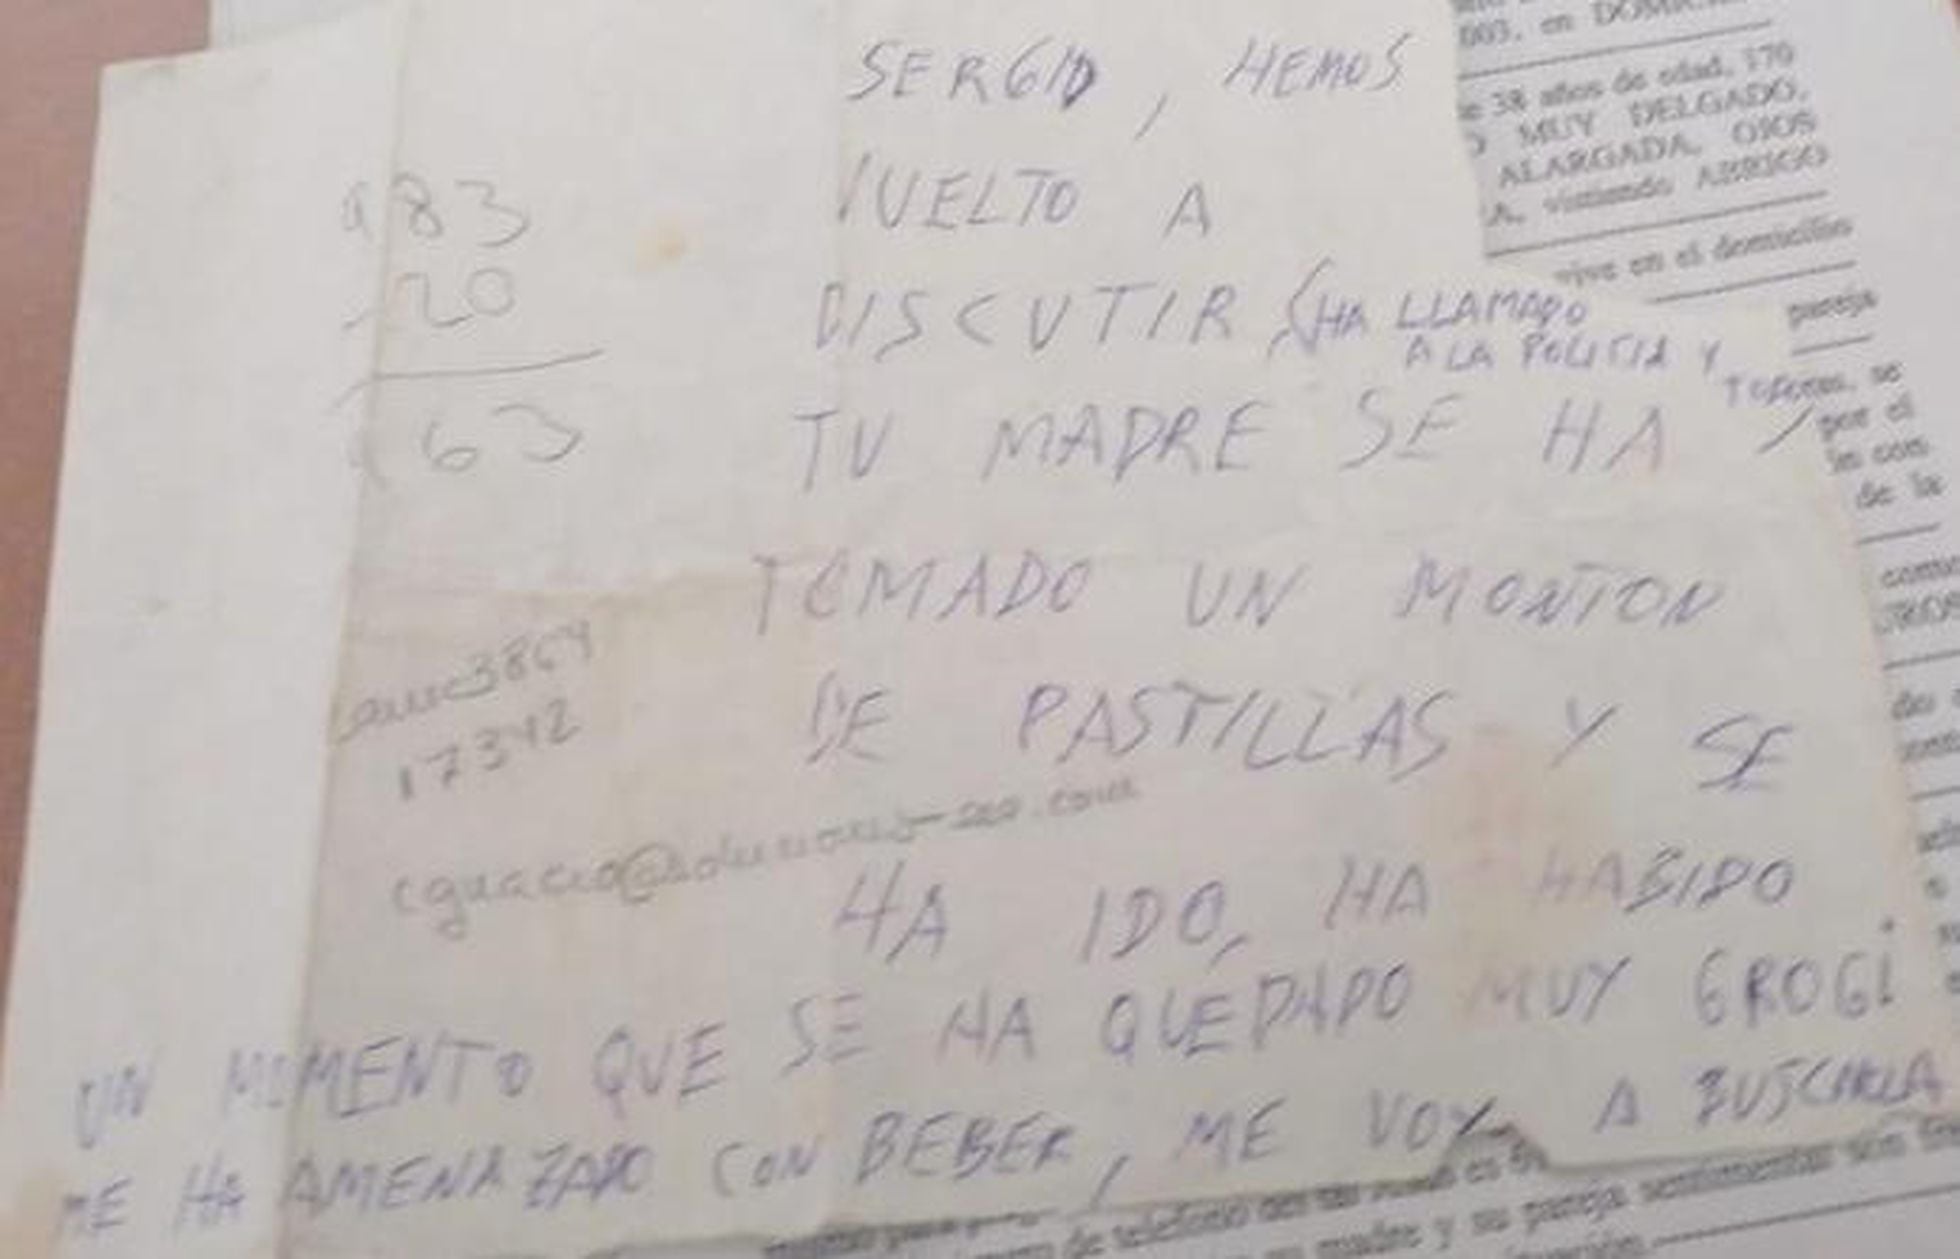 SERGIO, HEMOS
VUELTO A
DISCUTIR, (HA LLAMADO
A LA POLICIA Y
TU MADRE SE HA
TOMADO UN MONTON
DE PASTILLAS Y SE
HA IDO, HA HABIDO
UN MOMENTO QUE SE HA QUEDADO MUY GROGI
ME HA AMENAZADO CON BEBER, ME VOY A BUSCARLA
983
20
63
17342
003, en
38 años de edad, 170
MUY DELGADO,
ALARGADA, OJOS
A, vistiendo ABRIGO
vive en el domicilio
pareja
se
por el
con
de la
de teléfono
madre y su pareja sentimental son